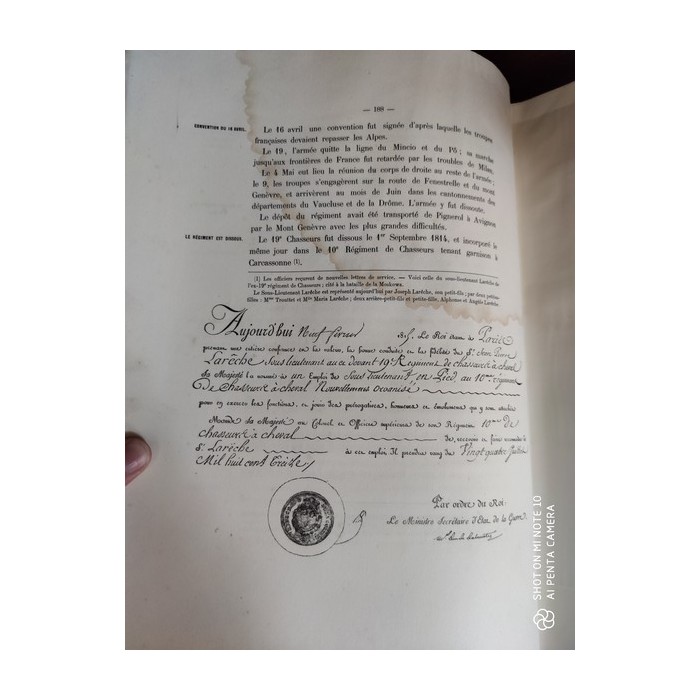 — 188 —
CONVENTION DU 16 AVRIL.
Le 16 avril une convention fut signée d'après laquelle les troupes
françaises devaient repasser les Alpes.
Le 19, l'armée quitte la ligne du Mincio et du Pô ; sa marche
jusqu'aux frontières de France fut retardée par les troubles de Milan.
Le 4 Mai eut lieu la réunion du corps de droite au reste de l'armée ;
le 9, les troupes s'engagèrent sur la route de Fenestrelle et du mont
Genèvre, et arrivèrent au mois de Juin dans les cantonnements des
départements du Vaucluse et de la Drôme. L'armée y fut dissoute.
Le dépôt du régiment avait été transporté de Pignerol à Avignon
par le Mont Genèvre avec les plus grandes difficultés.
LE RÉGIMENT EST DISSOUS.
Le 19e Chasseurs fut dissous le 1er Septembre 1814, et incorporé le
même jour dans le 10e Régiment de Chasseurs tenant garnison à
Carcassonne (1).
(1) Les officiers reçurent de nouvelles lettres de service. — Voici celle du sous-lieutenant Larèche de
l'ex-19e régiment de Chasseurs ; cité à la bataille de la Moskowa.
Le Sous-Lieutenant Larèche est représenté aujourd'hui par Joseph Larèche, son petit-fils ; par deux petites-
filles : Mme Trouttet et Mlle Maria Larèche ; deux arrière-petit-fils et petite-fille, Alphonse et Angèle Larèche.
Aujourd'hui Neuf février 1815. Le Roi étant à Paris
prenant une entière confiance en la valeur, la bonne conduite et en la fidélité du Sr. Jean Pierre
Larêche Sous lieutenant au ci devant 19e Régiment de chasseurs à cheval
Sa Majesté l'a nommé à un Emploi de Sous lieutenant en Pied, au 10me régiment
De chasseurs à cheval Nouvellement organisé
pour en exercer les fonctions, et jouir des prérogatives, honneurs et émoluments qui y sont attachés
Mande Sa Majesté au Colonel et Officiers supérieurs de son Régiment 10me de
chasseurs à cheval de recevoir et faire reconnaître le
Sr. Larêche à cet emploi. Il prendra rang du Vingt quatre Juillet
Mil huit cent Treize
Par ordre du Roi
Le Ministre Secrétaire d'État de la Guerre.
SHOT ON MI NOTE 10
AI PENTA CAMERA